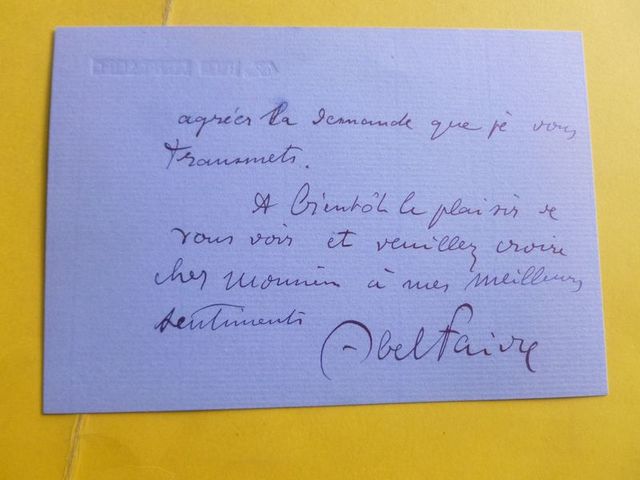 agréer la demande que je vous
transmets.
A bientôt le plaisir de
vous voir et veuillez croire
cher Monsieur à mes meilleurs
sentiments
Abel Faivre